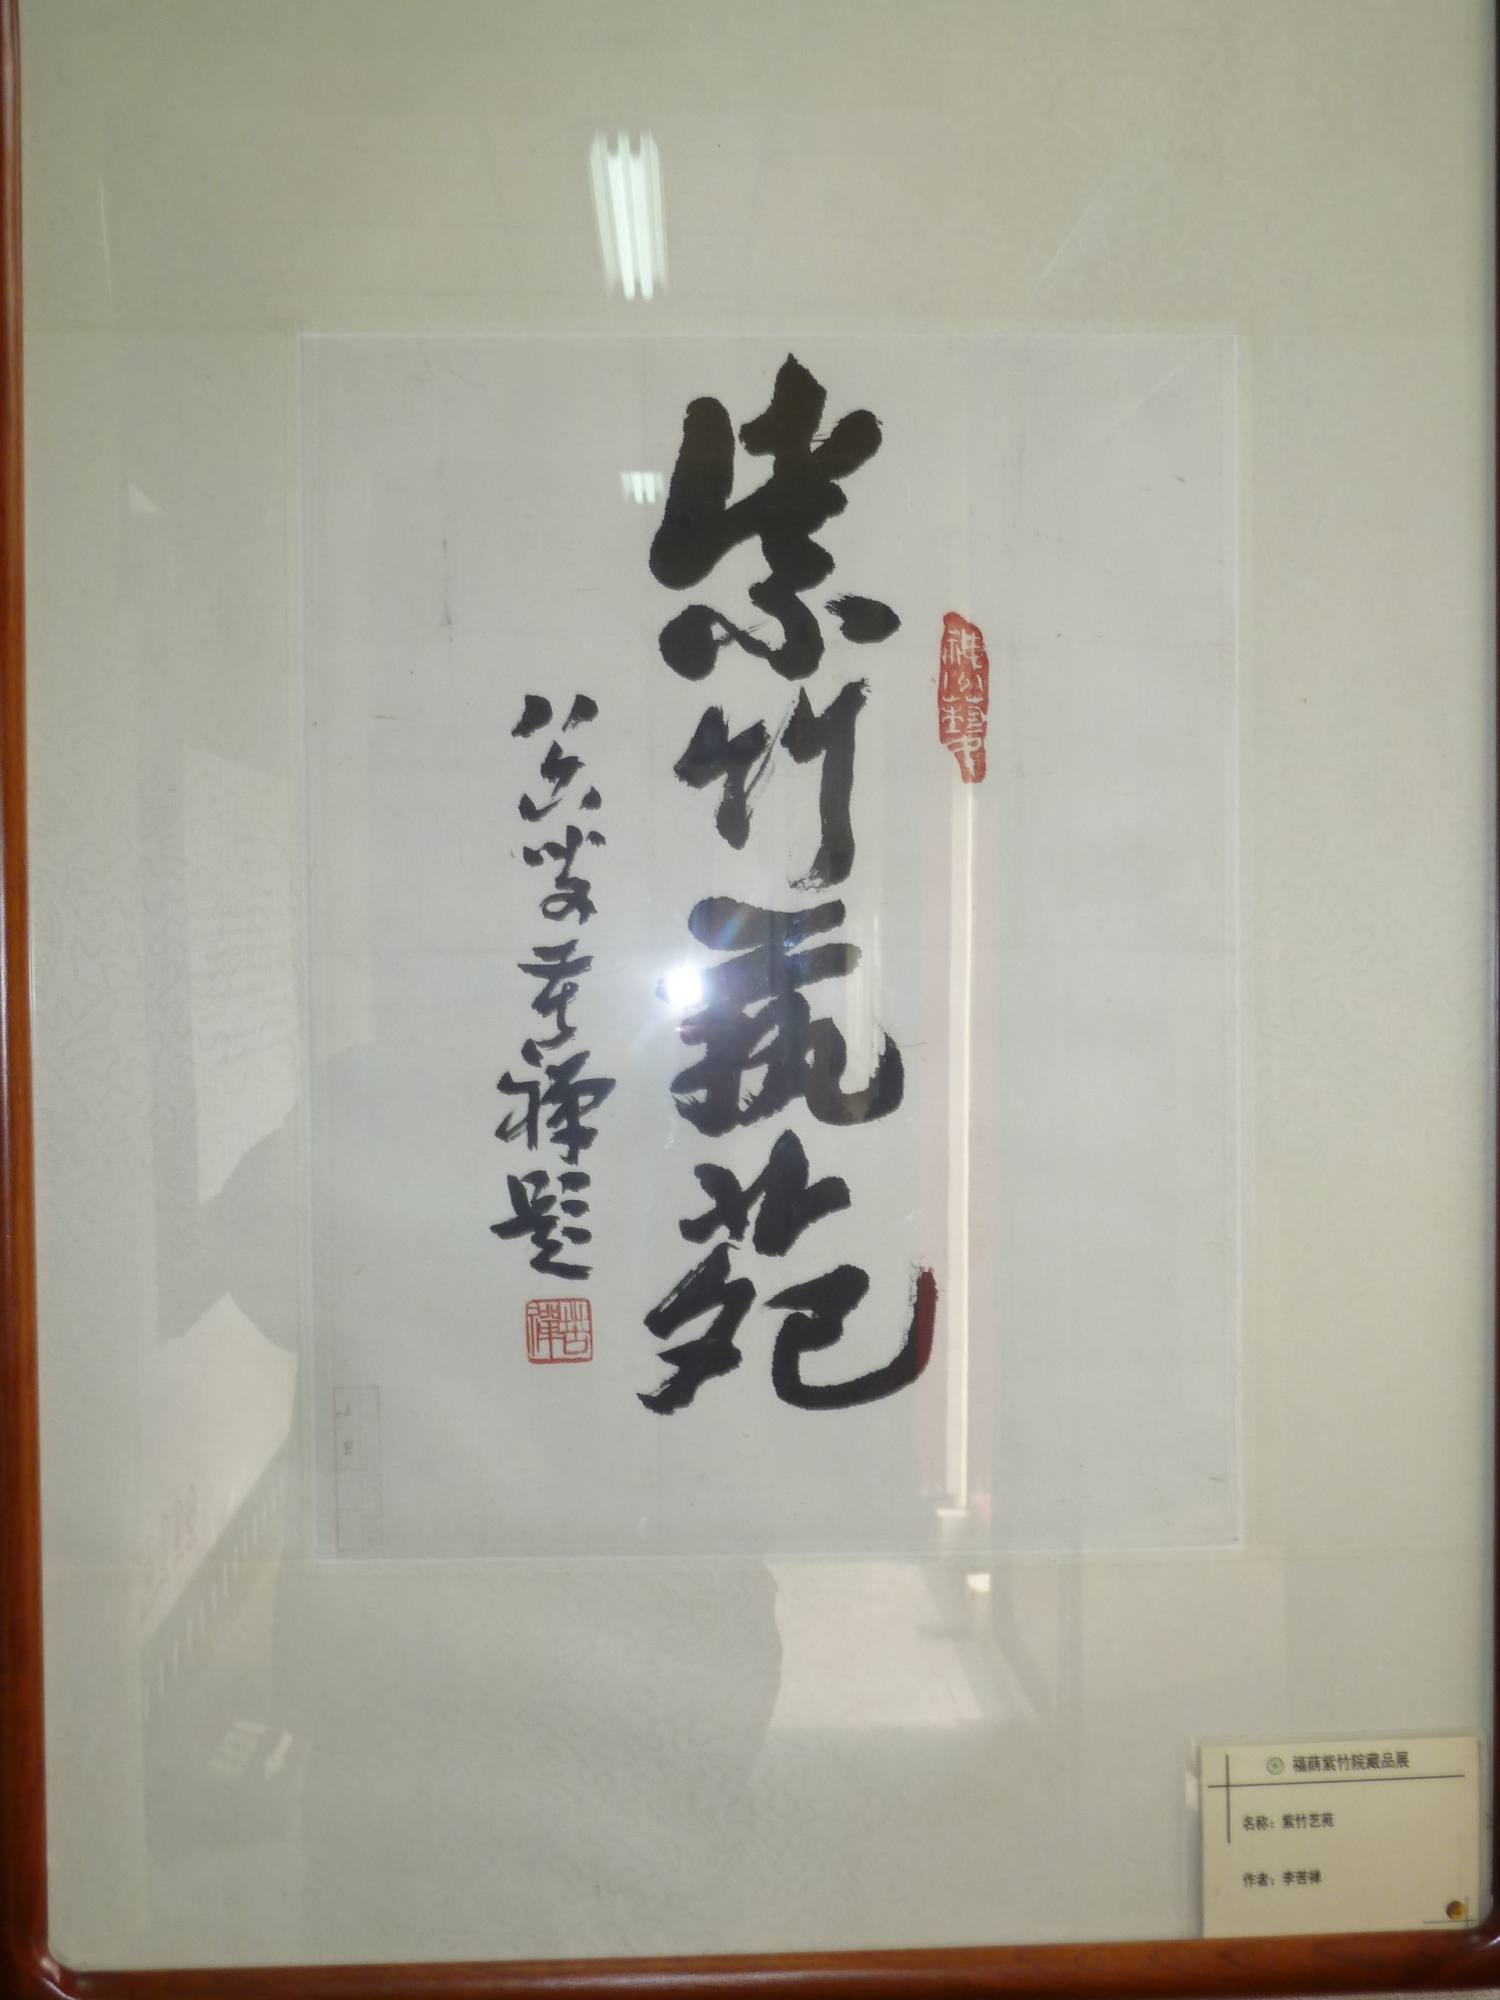 紫竹藝苑
八六叟苦禪題
苦禪
福荫紫竹院藏品展
名称：紫竹艺苑
作者：李苦禅